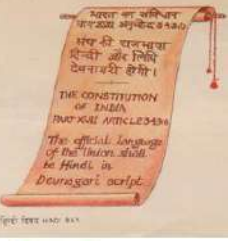 भारत का संविधान
संघ की राजभाषा
हिन्दी और लिपि
देवनागरी होगी।
THE CONSTITUTION
OF INDIA
PART XVII ARTICLE
The official language
of the Union shall
be Hindi in
Devnagari script
हिन्दी दिवस